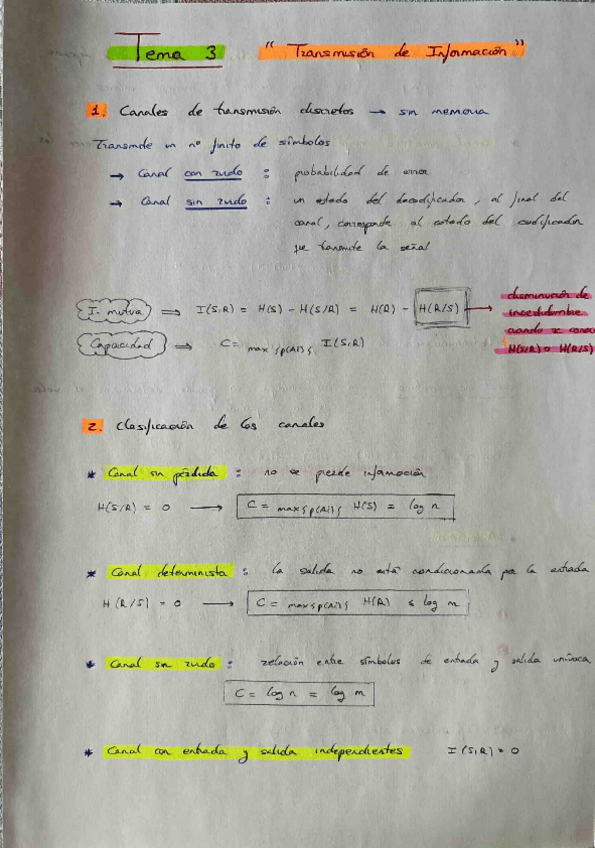 Tema 3 "Transmisión de Información"
1. Canales de transmisión discretos → sin memoria
Transmite un nº finito de símbolos
→ Canal con ruido : probabilidad de error
→ Canal sin ruido : un estado del decodificador, al final del
canal, corresponde al estado del codificador
que transmite la señal
I. mutua ⇒ I(S,R) = H(S) - H(S/R) = H(R) - H(R/S) → disminución de
incertidumbre
cuando se conoce
H(S/R) o H(R/S)
Capacidad → C = max {p(Ai)} I(S,R)
2. Clasificación de los canales
* Canal sin pérdida : no se pierde información
H(S/R) = 0 → C = max {p(Ai)} H(S) = log n
* Canal determinista : la salida no está condicionada por la entrada
H(R/S) = 0 → C = max {p(Ai)} H(R) ≤ log m
* Canal sin ruido : relación entre símbolos de entrada y salida unívoca
C = log n = log m
* Canal con entrada y salida independientes I(S,R) = 0